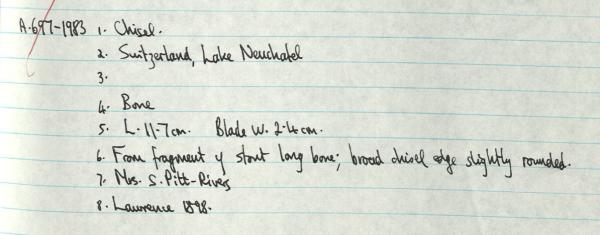 A.697-1983 1. Chisel.
2. Switzerland, Lake Neuchatel
3.
4. Bone
5. L. 11.7cm. Blade W. 2.4cm.
6. From fragment of stout long bone; broad chisel edge slightly rounded.
7. Mrs. S. Pitt-Rivers
8. Lawrence 1898.